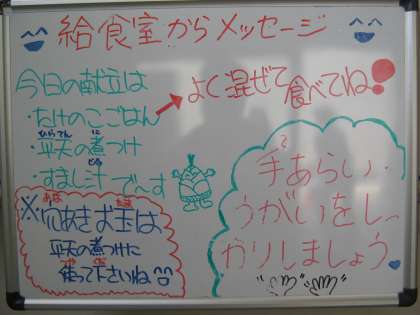 給食室からメッセージ
今日の献立は
・たけのこごはん
よく混ぜて食べてね!
ひらてん に
・平天の煮つけ
じゅ
・すまし汁で〜す
あな たま
※穴あきお玉は
平天の煮つけに
使って下さいね
手あらい・
うがいをしっ
かりしましょう